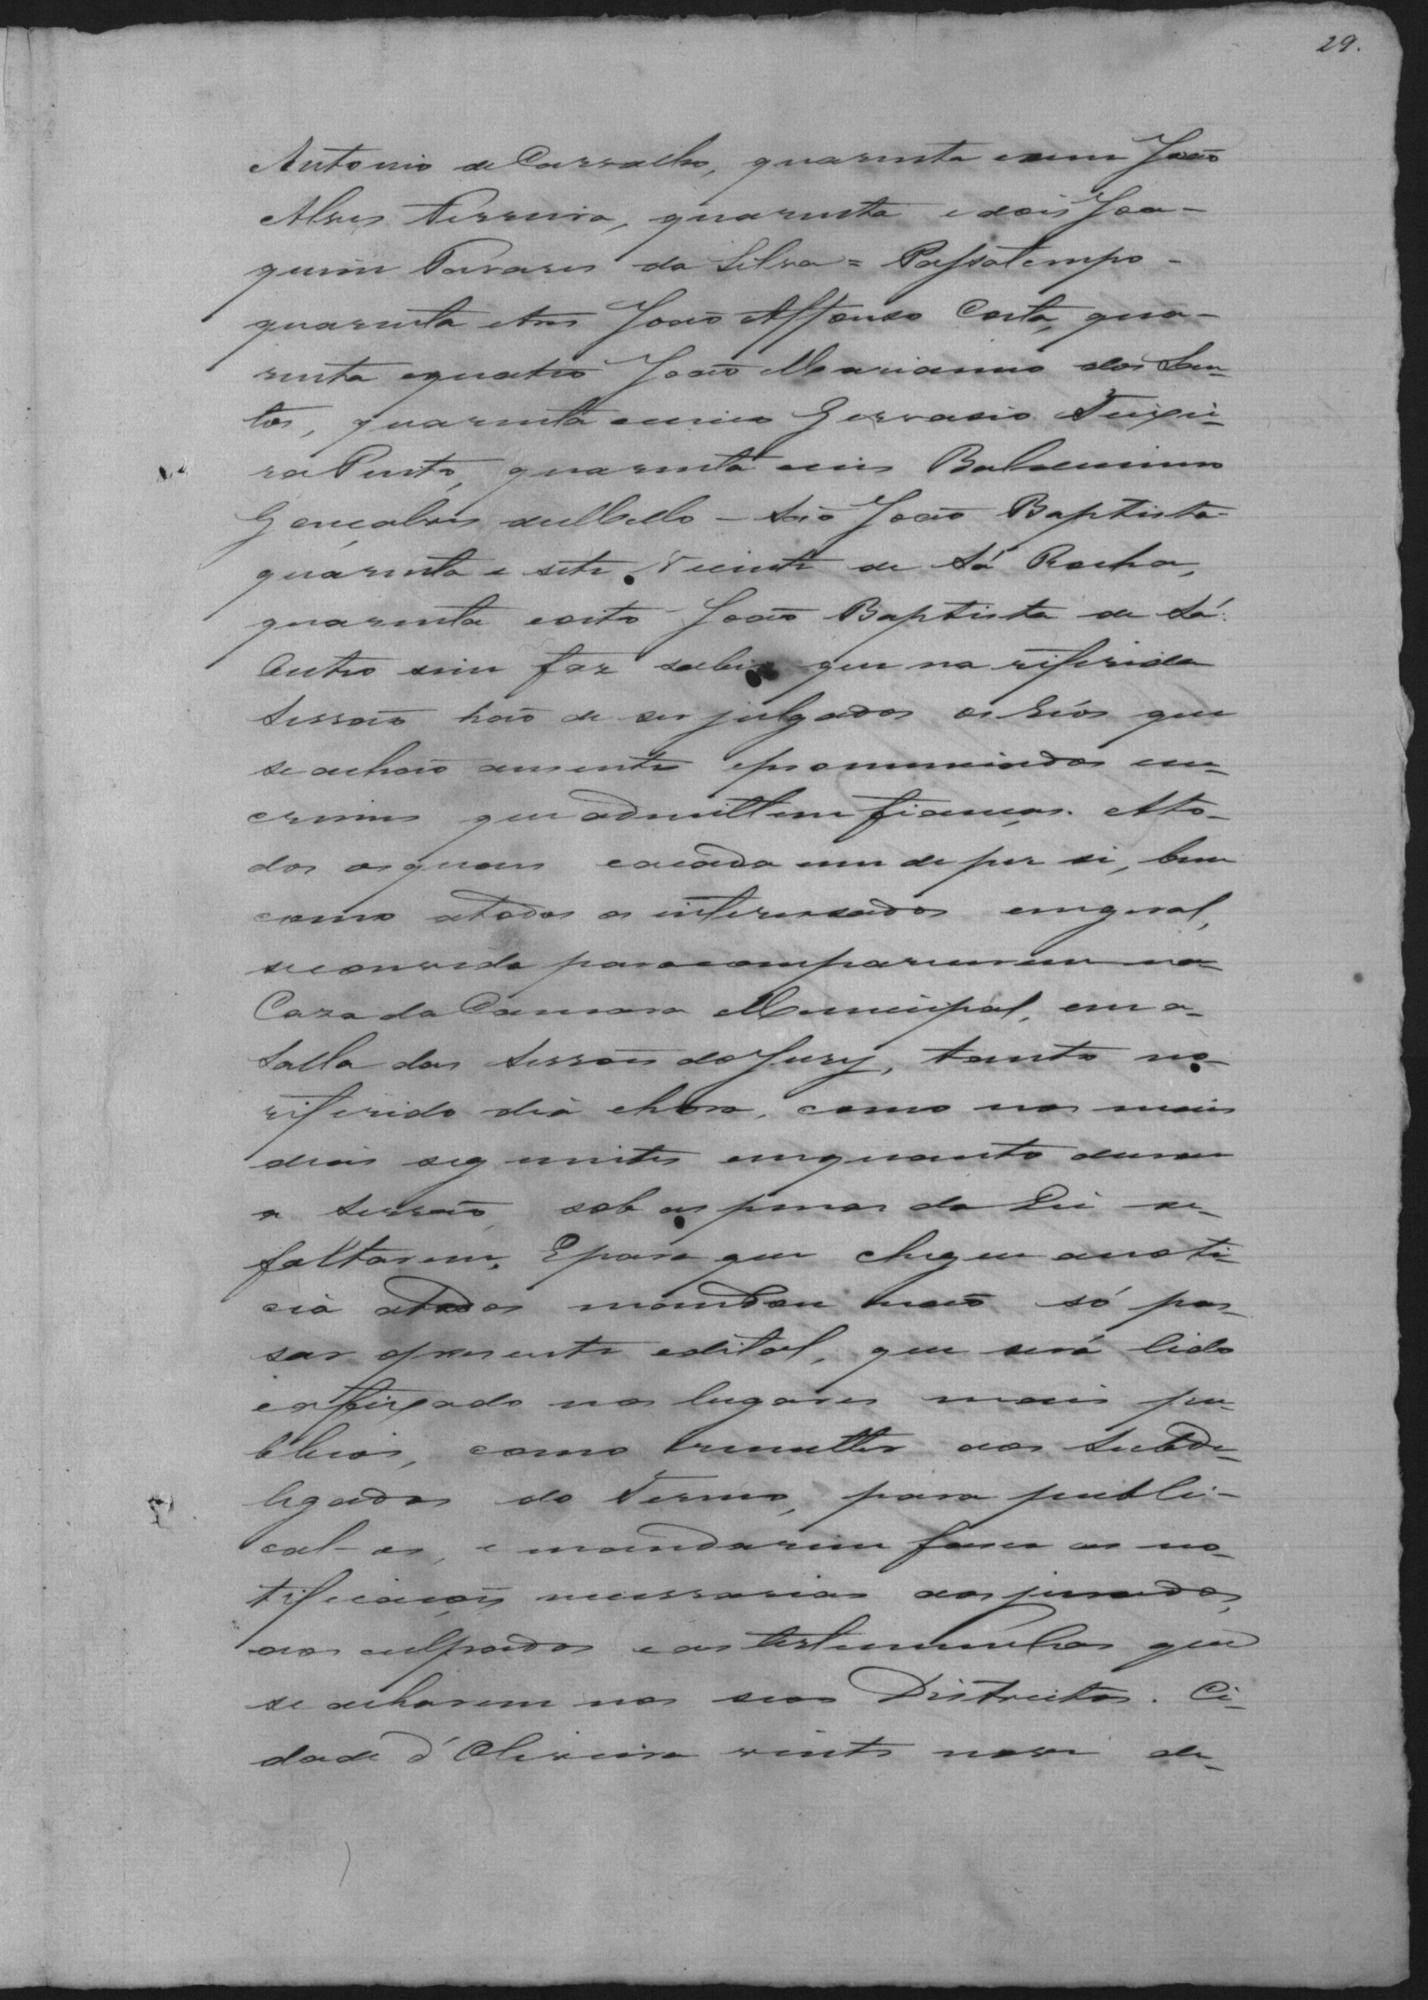 29.
Antonio de Carvalho, quarenta e um João
Alves Ferreira, quarenta e dois Joa-
quim Tavares da Silva = Passatempo -
quarenta e tres João Affonso Costa, qua-
renta e quatro João Marianno dos San-
tos, quarenta e cinco Gervasio Teixei-
ra Pinto, quarenta e seis Balduino
Gonçalves de Mello - São João Baptista
quarenta e sete Vicente de Sá Rocha,
quarenta e oito João Baptista de Sá.
Outro sim faz saber que na referida
Sessão hão de ser julgados os Réos que
se achão ausentes e pronunciados em
crimes que admittem fiança. A to-
dos os quaes e a cada um de per si, bem
como a todos os interessados em geral,
se convida para comparecerem na
Caza da Camara Municipal, em a
Salla das Sessões do Jury, tanto no
referido dia e hora, como nos mais
dias seguintes emquanto durar
a Sessão, sob as penas da Lei se
faltarem. E para que chegue a noti-
cia a todos mandou não só pas-
sar o presente edital, que será lido
e affixado nos lugares mais pu-
blicos, como remetter aos Subde-
legados do Termo, para publi-
cal-os, e mandarem fazer as no-
tificações necessarias aos jurados,
aos culpados e as testemunhas que
se acharem nos seos Districtos. Ci-
dade d'Oliveira vinte nove de